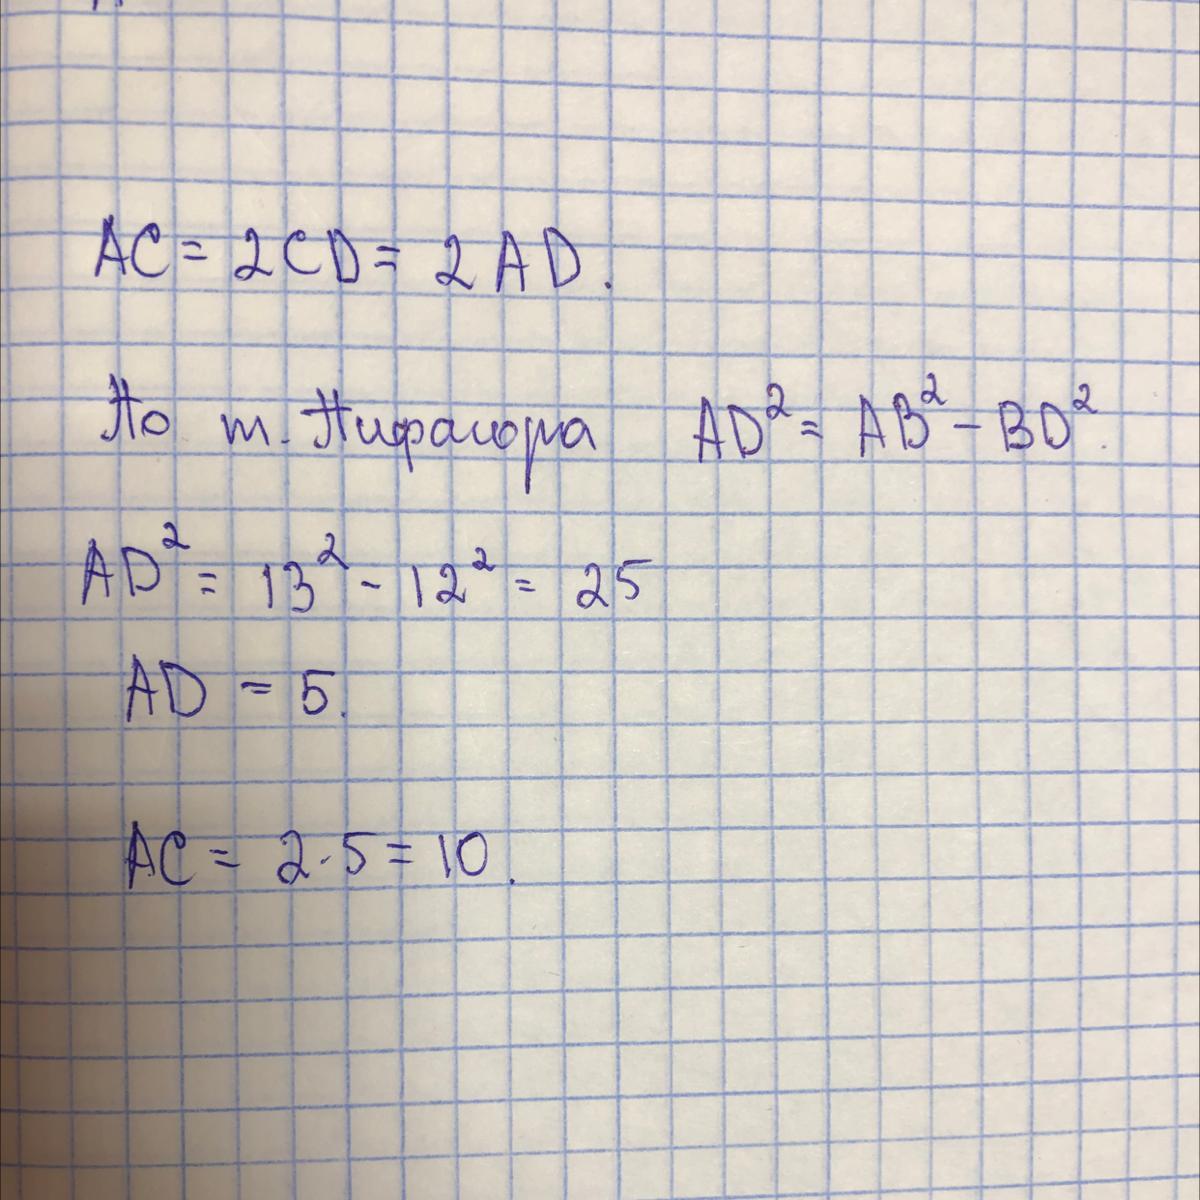 AC = 2CD = 2AD.
По т. Пифагора AD² = AB² - BD².
AD² = 13² - 12² = 25
AD = 5.
AC = 2·5 = 10.